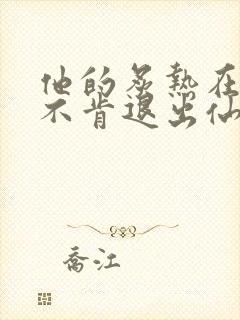 他的炙热在
不肯退出仙
乔江